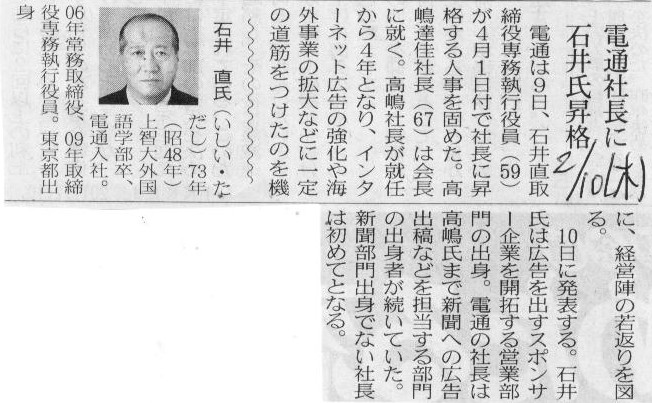 電通社長に
石井氏昇格
2/10(木)
電通は9日、石井直取
締役専務執行役員（59）
が4月1日付で社長に昇
格する人事を固めた。高
嶋達佳社長（67）は会長
に就く。高嶋社長が就任
から4年となり、インタ
ーネット広告の強化や海
外事業の拡大などに一定
の道筋をつけたのを機
に、経営陣の若返りを図
る。
10日に発表する。石井
氏は広告を出すスポンサ
ー企業を開拓する営業部
門の出身。電通の社長は
高嶋氏まで新聞への広告
出稿などを担当する部門
の出身者が続いていた。
新聞部門出身でない社長
は初めてとなる。
石井　直氏（いしい・た
だし）73年
（昭48年）
上智大外国
語学部卒、
電通入社。
06年常務取締役、09年取締
役専務執行役員。東京都出
身